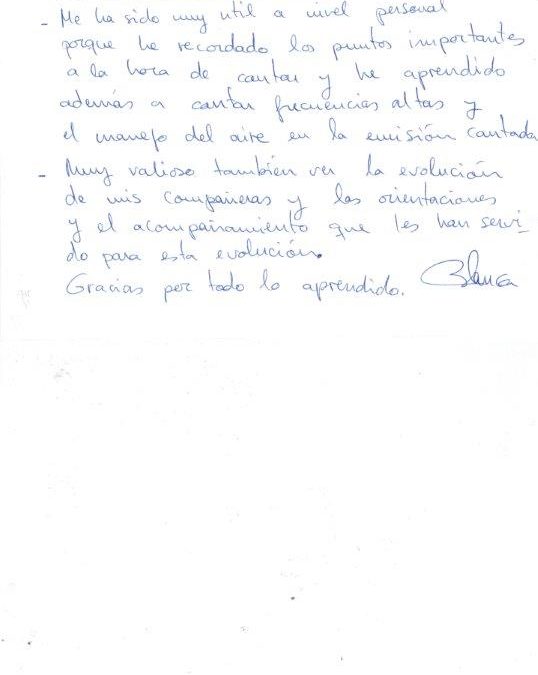 - Me ha sido muy util a nivel personal
porque he recordado los puntos importantes
a la hora de cantar y he aprendido
además a cantar frecuencias altas y
el manejo del aire en la emisión cantada
- Muy valioso también ver la evolución
de mis compañeras y las orientaciones
y el acompañamiento que les han servi-
do para esta evolución.
Gracias por todo lo aprendido. Blanca